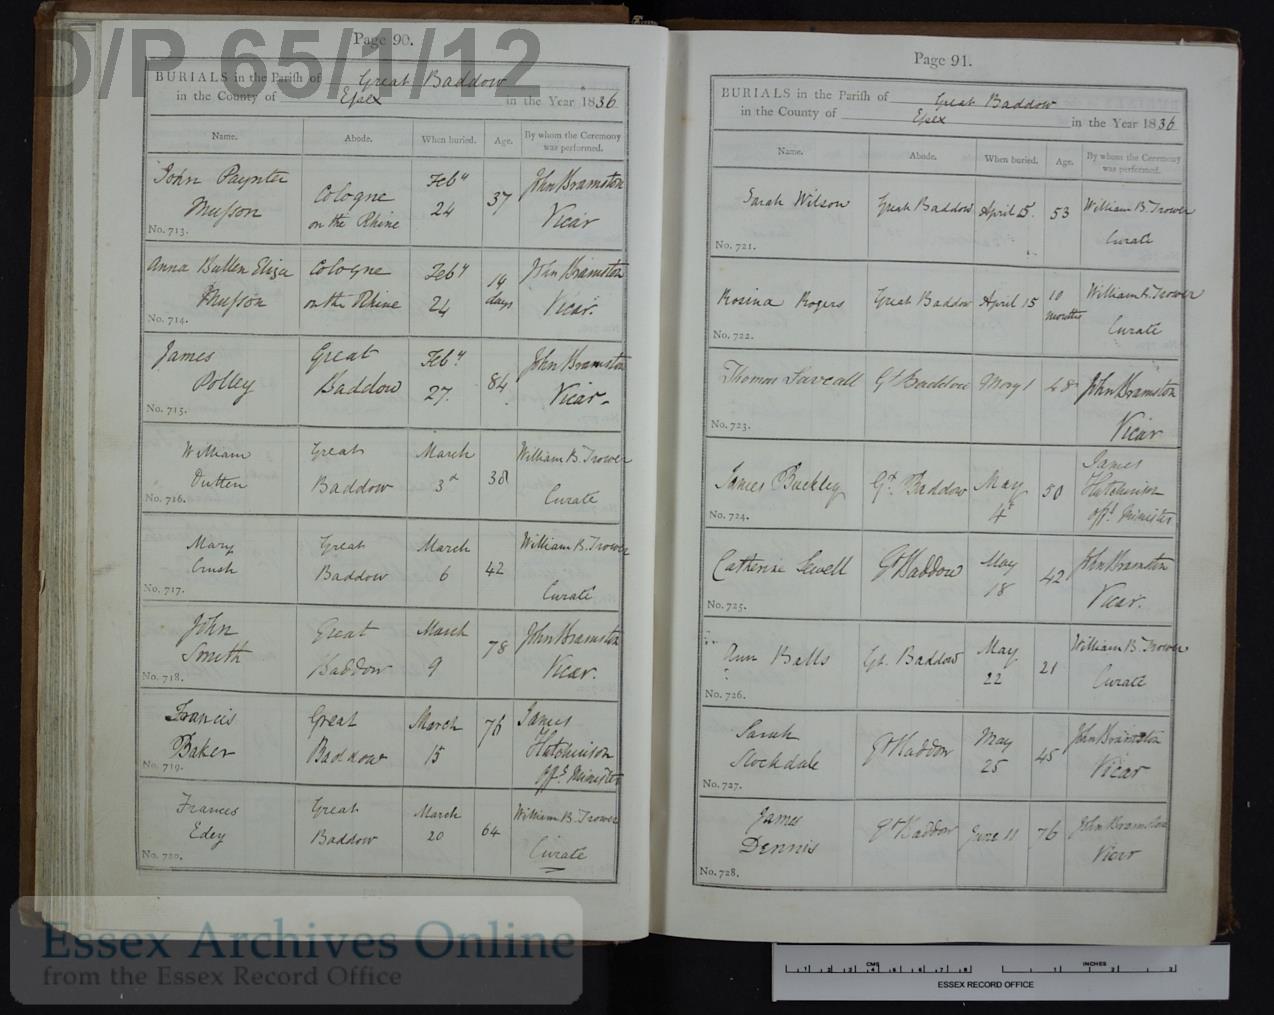 D/P 65/1/12
Page 90.
BURIALS in the Parish of Great Baddow
in the County of Essex in the Year 1836
Name. Abode. When buried. Age. By whom the Ceremony was performed.
John Paynter Musson Cologne on the Rhine Feby 24 37 John Bramston Vicar
No. 713.
Anna Bullen Eliza Musson Cologne on the Rhine Feby 24 14 days John Bramston Vicar.
No. 714.
James Polley Great Baddow Feby 27. 84 John Bramston Vicar
No. 715.
William Dutten Great Baddow March 3d 38 William B. Trower Curate
No. 716.
Mary Crush Great Baddow March 6 42 William B. Trower Curate
No. 717.
John Smith Great Baddow March 9 78 John Bramston Vicar.
No. 718.
Francis Baker Great Baddow March 15 76 James Hutchinson Offg Minister
No. 719.
Frances Edey Great Baddow March 20 64 William B. Trower Curate
No. 720.
Page 91.
BURIALS in the Parish of Great Baddow
in the County of Essex in the Year 1836
Name. Abode. When buried. Age. By whom the Ceremony was performed.
Sarah Wilson Great Baddow April 5. 53 William B. Trower Curate
No. 721.
Rosina Rogers Great Baddow April 15 10 months William B. Trower Curate
No. 722.
Thomas Saveall Gt Baddow May 1 48 John Bramston Vicar
No. 723.
James Buckley Gt. Baddow May 4 50 James Hutchinson Offg Minister
No. 724.
Catherine Sewell Gt Baddow May 18 42 John Bramston Vicar.
No. 725.
Ann Balls Gt. Baddow May 22 21 William B. Trower Curate
No. 726.
Sarah Stockdale Gt Baddow May 25 45 John Bramston Vicar
No. 727.
James Dennis Gt Baddow June 11 76 John Bramston Vicar
No. 728.
Essex Archives Online
from the Essex Record Office
CMS
INCHES
ESSEX RECORD OFFICE